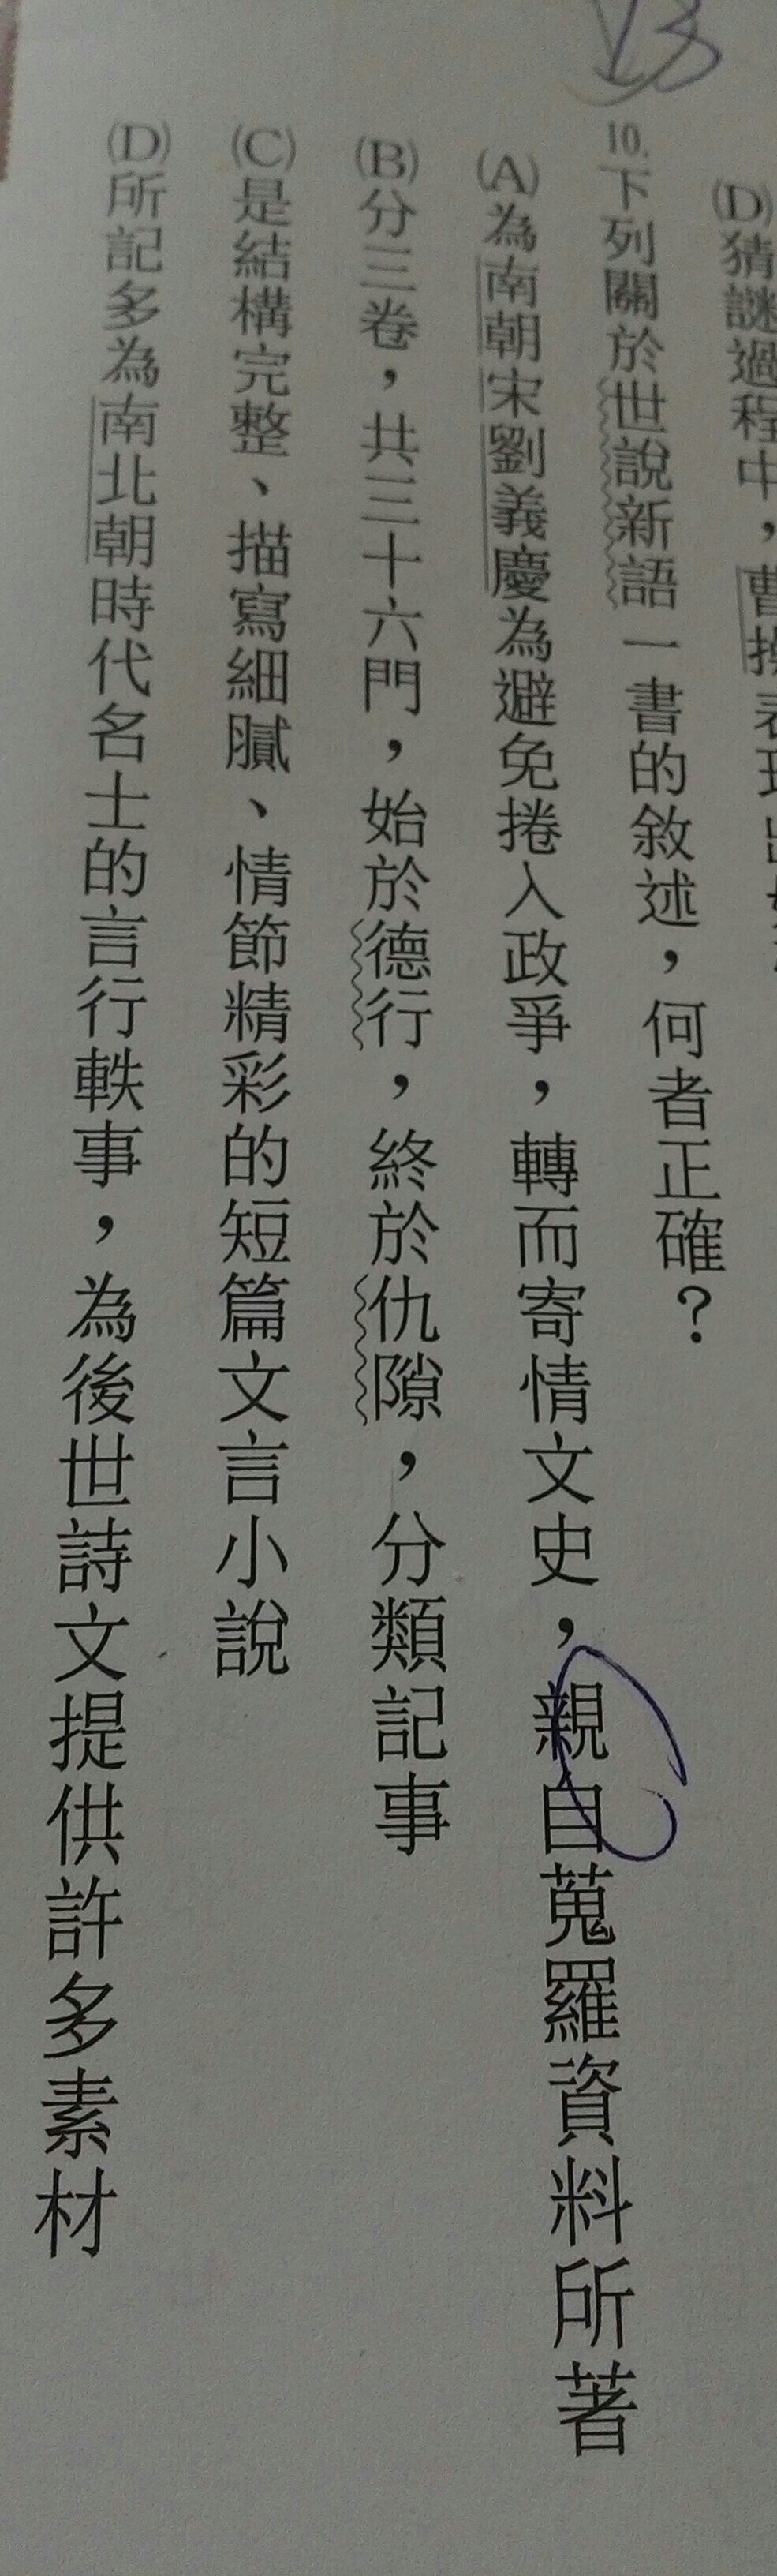 (D)猜謎過程中，曹操表現出
10.下列關於世說新語一書的敘述，何者正確？
(A)為南朝宋劉義慶為避免捲入政爭，轉而寄情文史，親自蒐羅資料所著
(B)分三卷，共三十六門，始於德行，終於仇隙，分類記事
(C)是結構完整、描寫細膩、情節精彩的短篇文言小說
(D)所記多為南北朝時代名士的言行軼事，為後世詩文提供許多素材